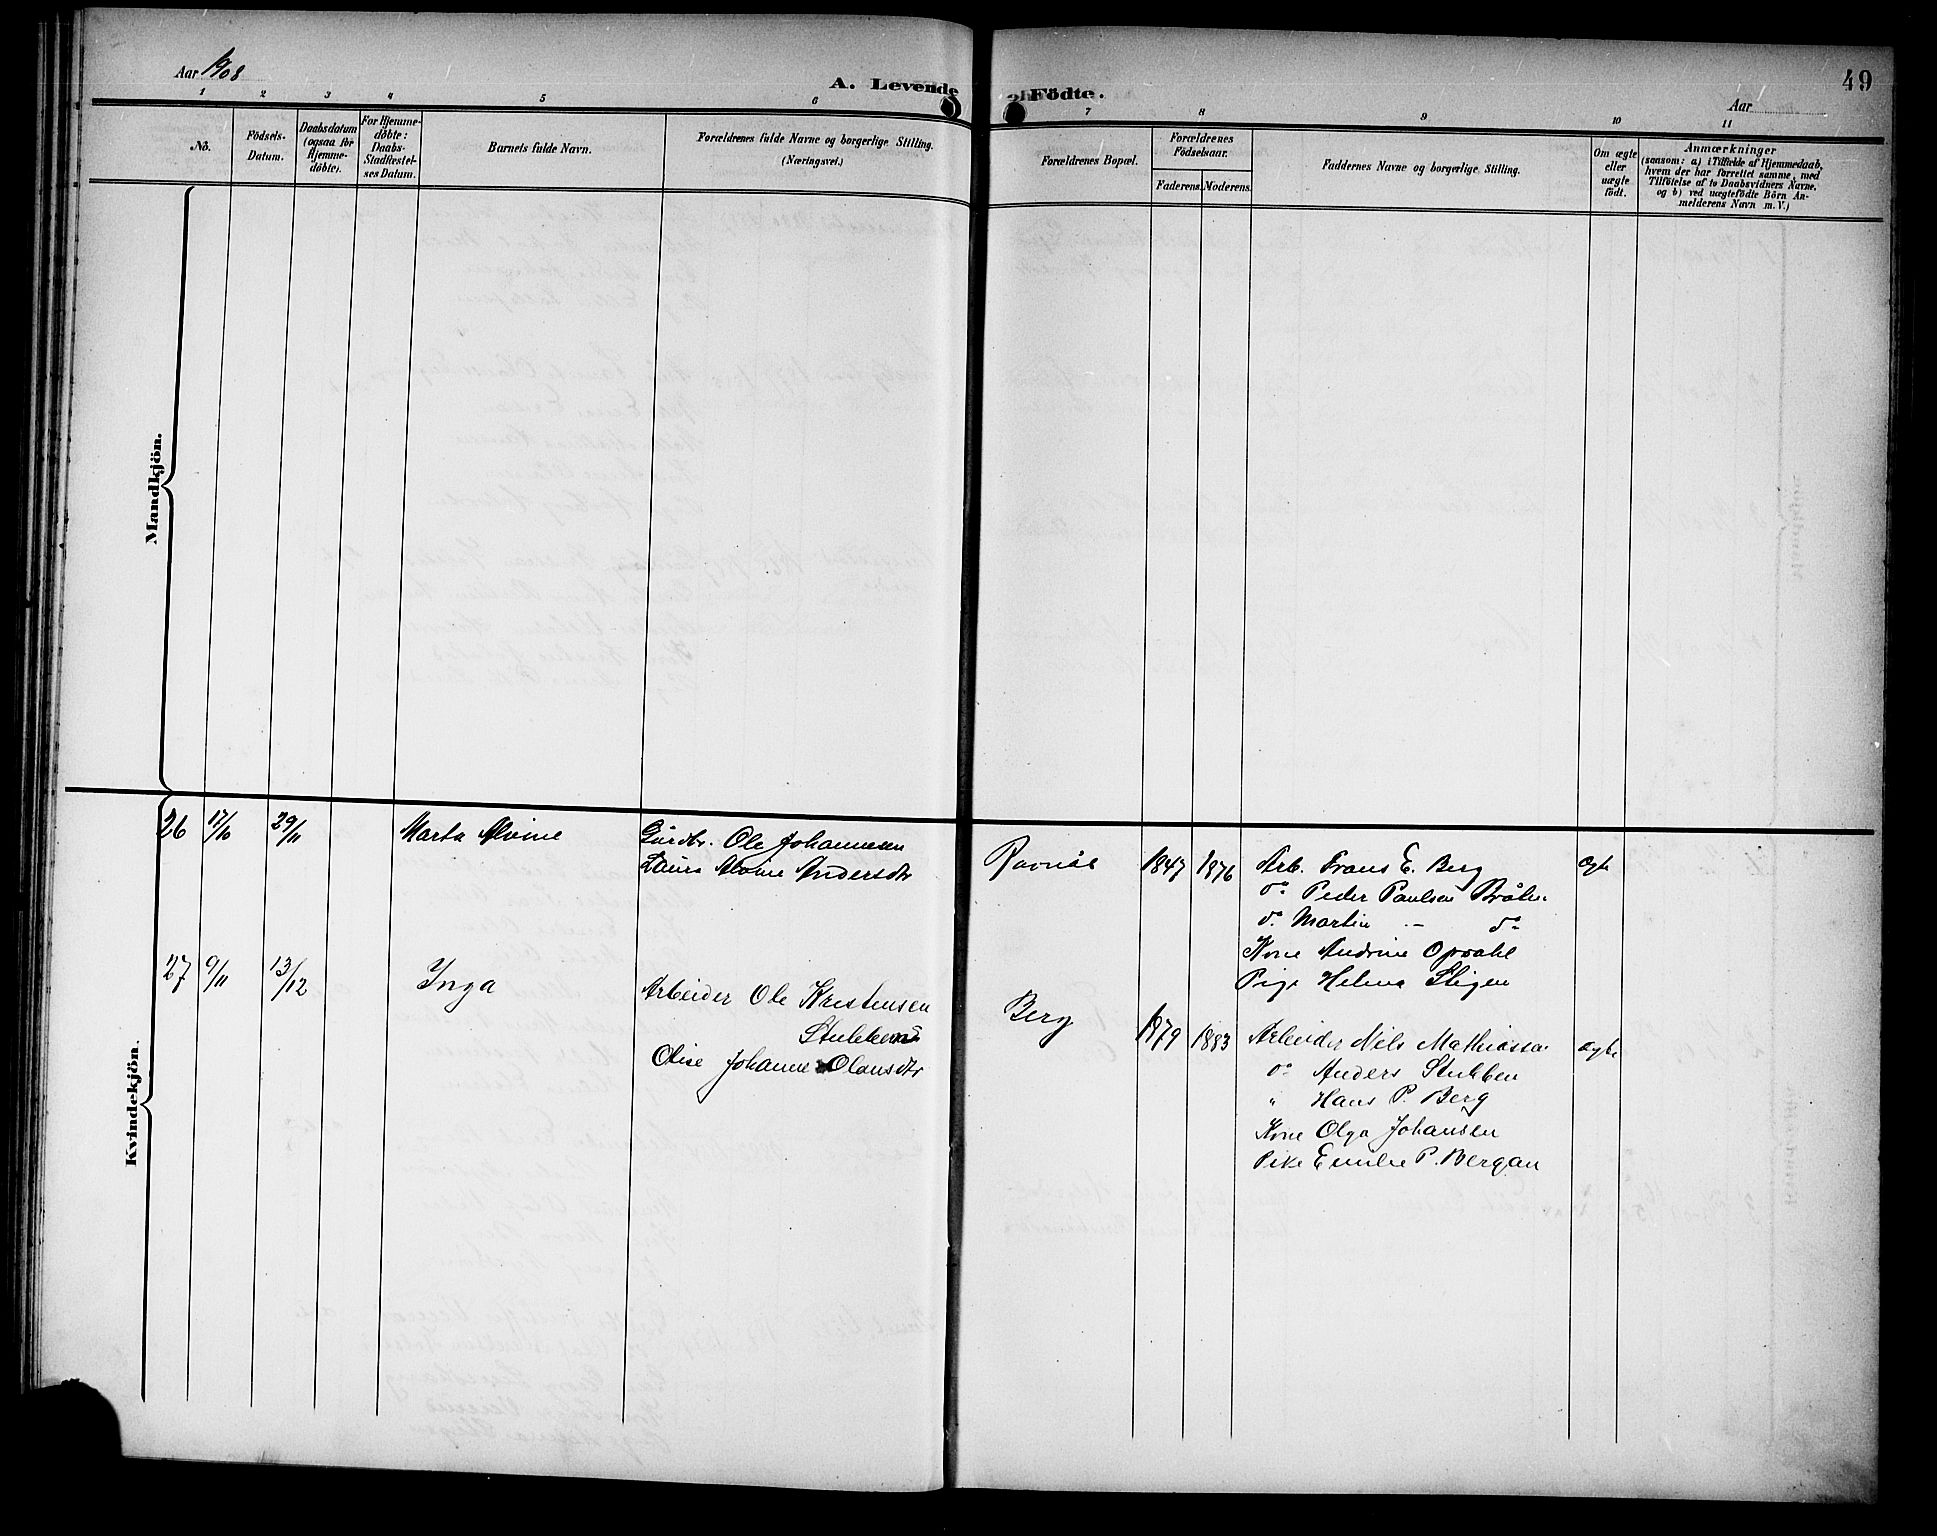 Aar 1908
A. Levende Födte.
49
Aar
1 2 3 4 5 6 7 8 9 10 11
No.
Födsels-
Datum.
Daabsdatum
(ogsaa for
Hjemme-
döbte).
For Hjemme-
döbte:
Daabs-
Stadfæstel-
ses Datum.
Barnets fulde Navn.
Forældrenes fulde Navne og borgerlige Stilling.
(Næringsvei.)
Forældrenes Bopæl.
Forældrenes
Födselsaar.
Faderens. Moderens.
Faddernes Navne og borgerlige Stilling.
Om ægte
eller
uægte
födt.
Anmærkninger
(saasom: a) i Tilfælde af Hjemmedaab,
hvem der har forrettet samme, med
Tilföielse af to Daabsvidners Navne,
og b) ved uægtefödte Börn An-
melderens Navn m. V.)
Mandkjön.
Kvindekjön.
26 17/10 29/11 Marta Alvine
Gårdbr. Ole Johannesen
Laura Alvine Andersdtr
Ravnås 1847 1876
Arb. Frans E. Berg
do Peder Paulsen Bråten
do Martin - do
Kone Andrine Opsahl
Pige Helena Stigen
ægte
27 9/11 13/12 Inga
Arbeider Ole Kristensen
Stubben
Olise Johanne Olausdtr
Berg 1879 1883
Arbeider Nils Mathiassen
do Anders Stubben
" Hans P. Berg
Kone Olga Johansen
Pike Emilie P. Bergan
ægte